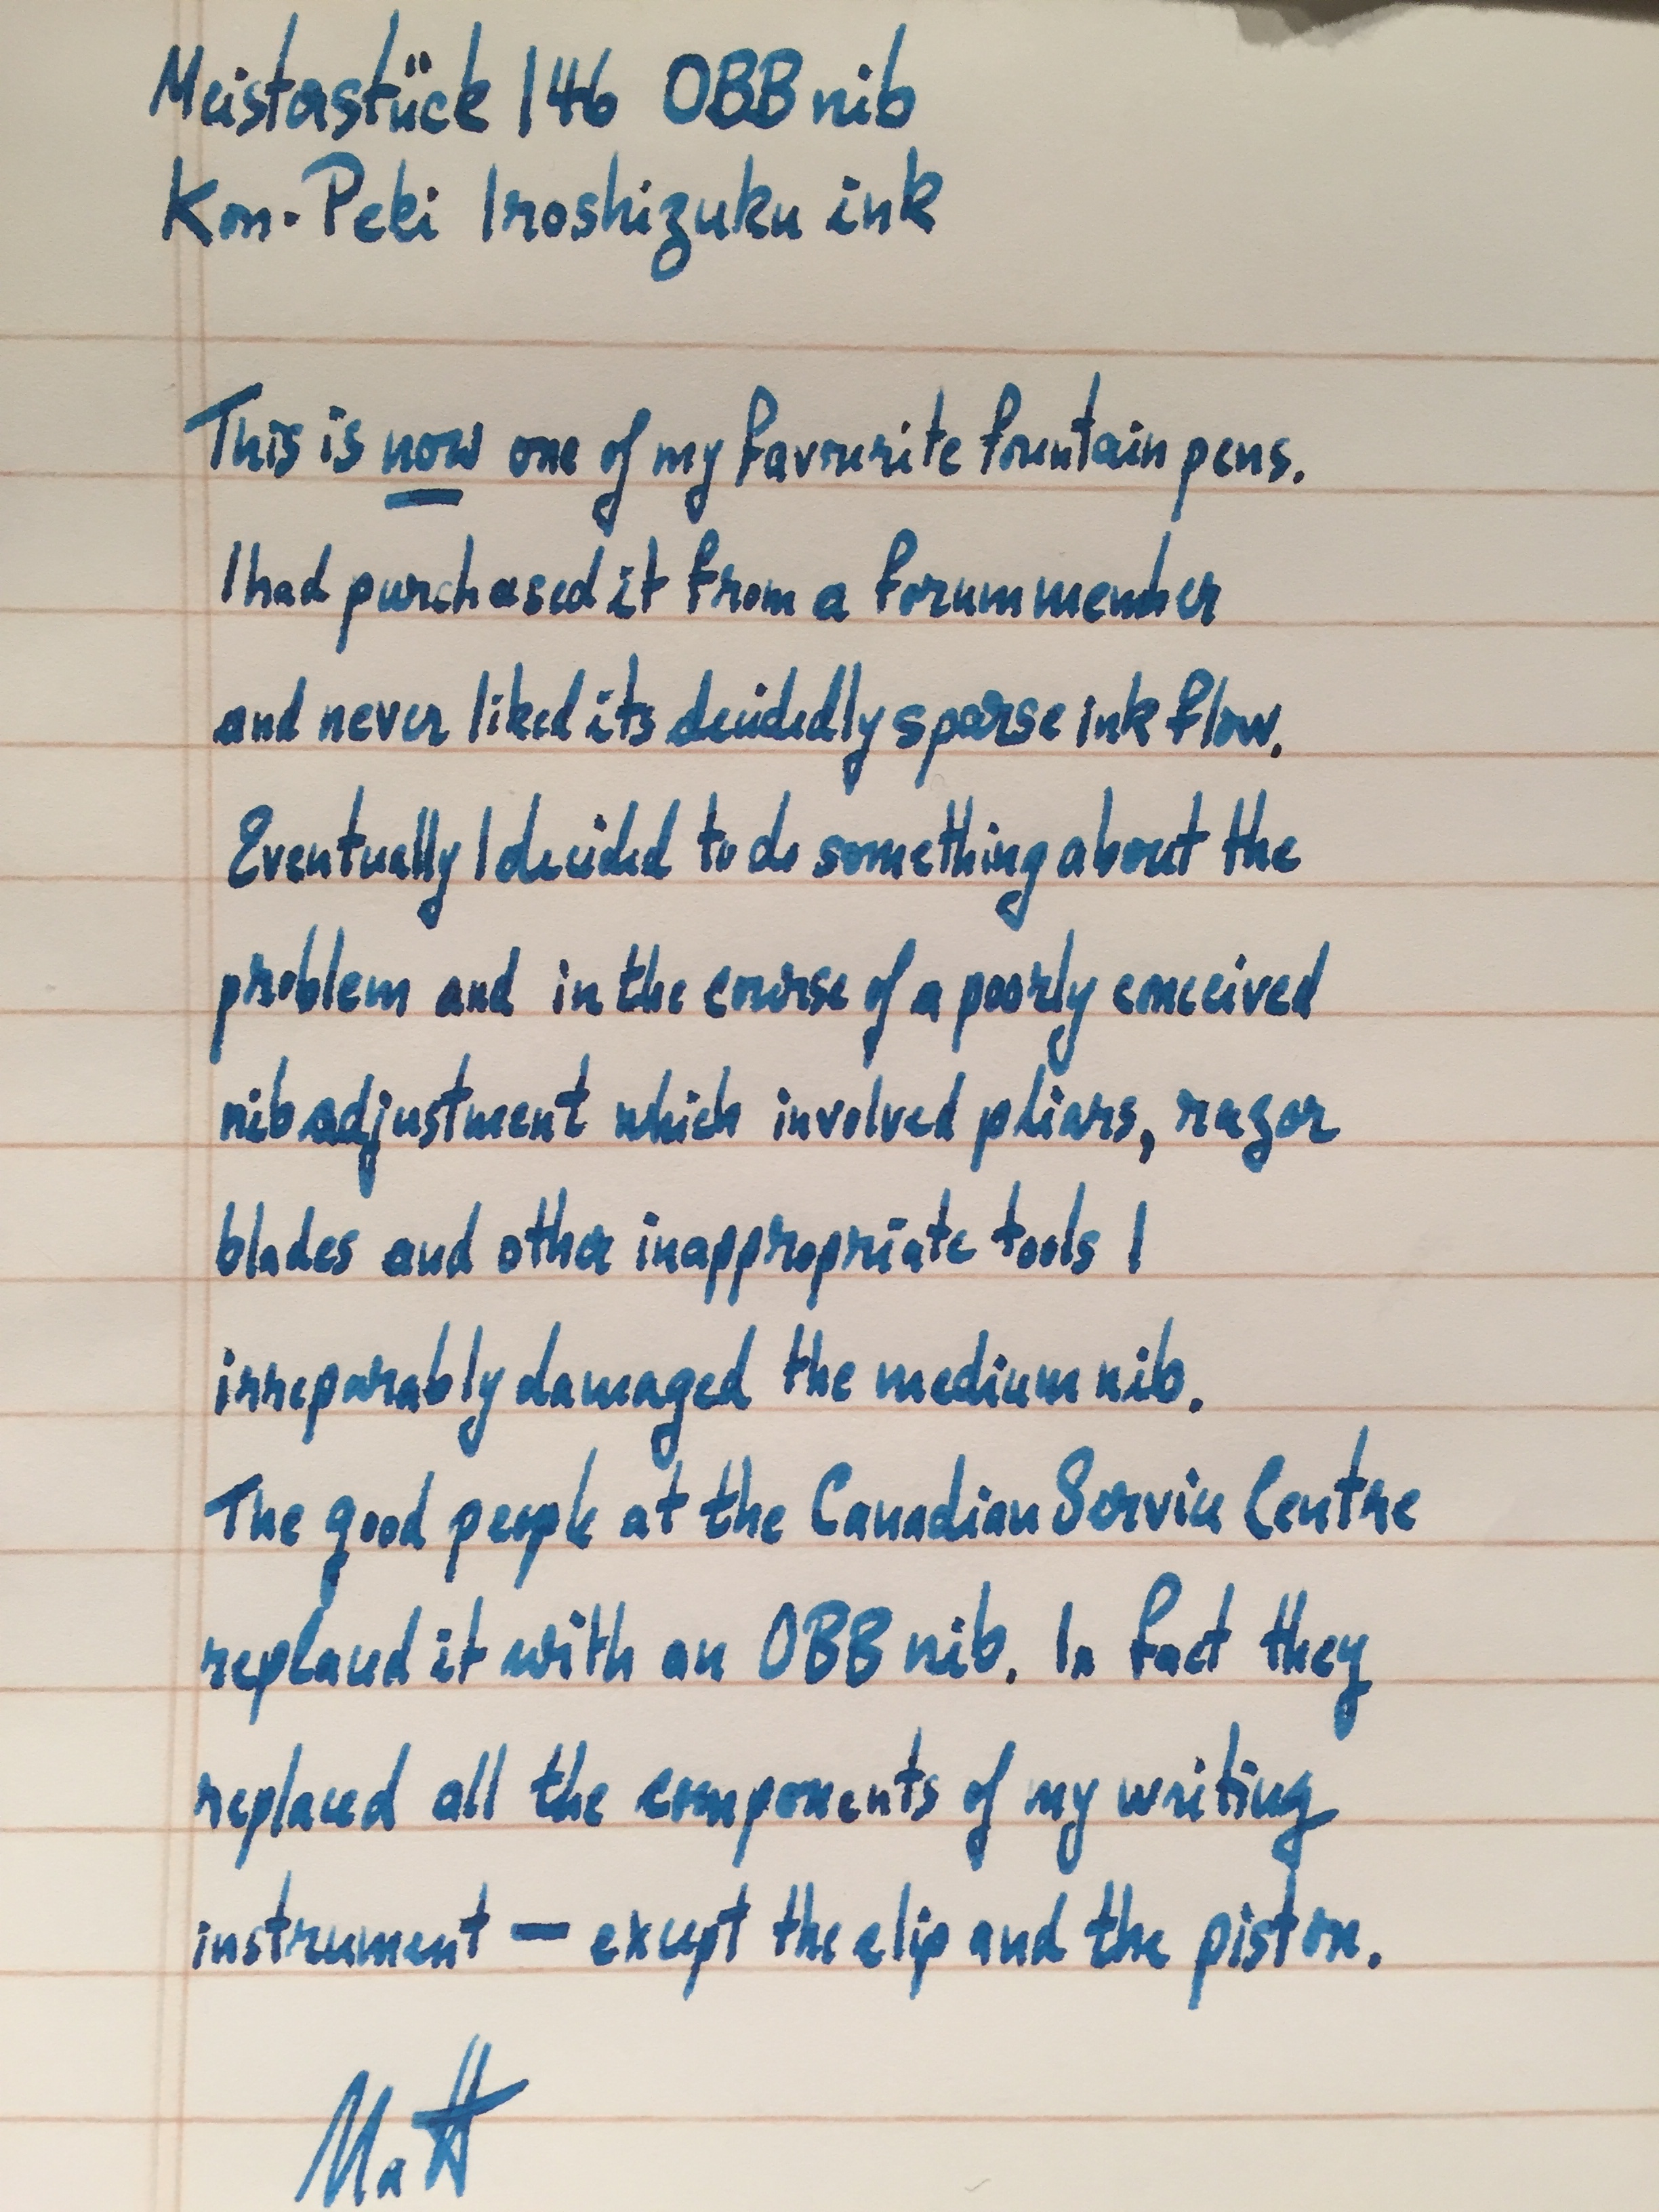 Meisterstück 146 OBB nib
Kon-Peki Iroshizuku ink
This is now one of my favourite fountain pens.
I had purchased it from a forum member
and never liked its decidedly sparse ink flow.
Eventually I decided to do something about the
problem and in the course of a poorly conceived
nib adjustment which involved pliars, razor
blades and other inappropriate tools I
irreparably damaged the medium nib.
The good people at the Canadian Service Centre
replaced it with an OBB nib. In fact they
replaced all the components of my writing
instrument — except the clip and the piston.
Matt